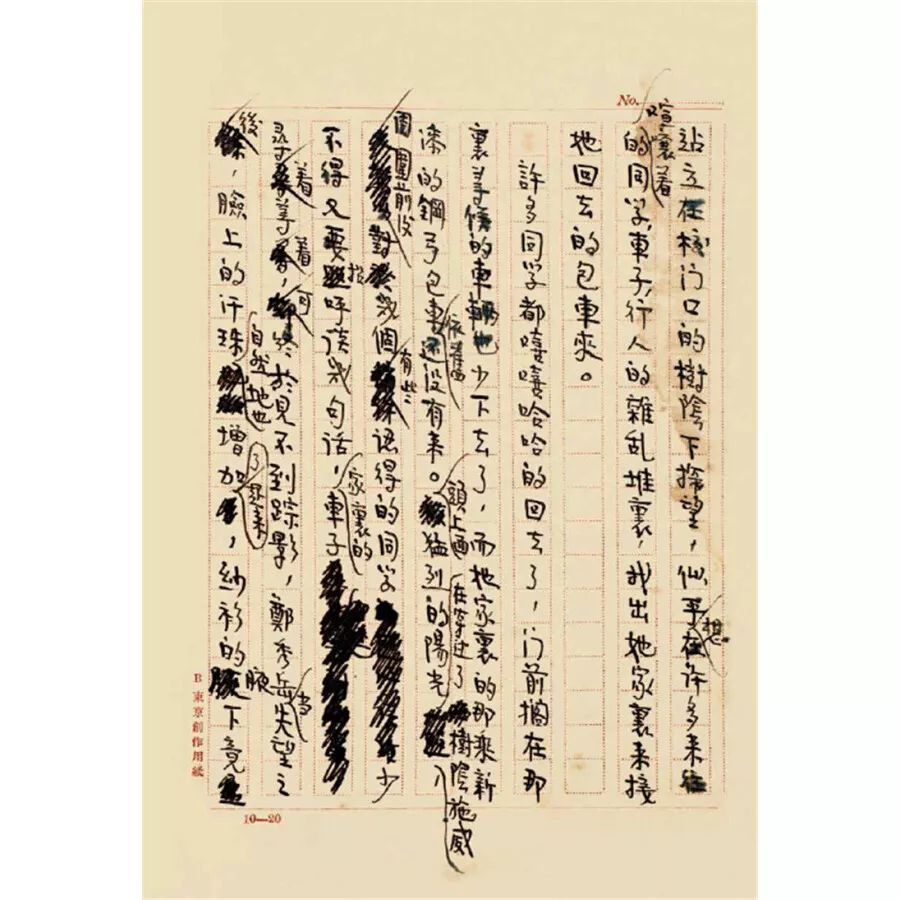 No.
站立在校门口的樹陰下探望，似乎想在許多来往
喧嚷着的同学，車子，行人的雜乱堆裏，找出她家裏来接
她回去的包車來。
許多同学都嘻嘻哈哈的回去了，门前擱在那
裏等候的車輛也少下去了，而她家裏的那乘新
漆的鋼弓包車依舊還没有来。頭上面猛烈的陽光在穿过了樹陰施威，
周圍前後對幾個有些認得的同学少
不得又要招呼談幾句話，家裏的車子
着着，可終於見不到踪影，鄭秀岳当失望之
後，臉上的汗珠自然地也增加了起来，紗衫的腋下竟
B 東京創作用紙
10—20